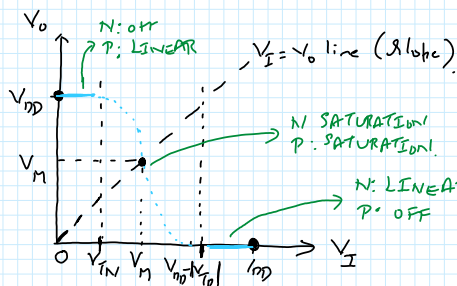 V₀
N: OFF
P: LINEAR
V_I = V₀ line (slope)
V_DD
N SATURATION
P: SATURATION
V_M
N: LINEA
P: OFF
0 V_TN V_M V_DD-|V_TP| V_DD V_I